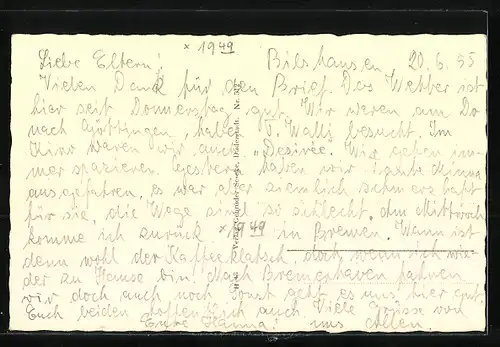 x 1949
Liebe Eltern! Bilshausen 20.6.55
Vielen Dank für den Brief. Das Wetter ist
hier seit Donnerstag gut. Wir waren am Do
nach Göttingen, haben v. Walli besucht. Im
Kino waren wir auch "Desirée". Wir gehen im-
mer spazieren. Gestern haben wir Tante Minna
ausgefahren, es war aber ziemlich schmerzhaft
für sie, die Wege sind so schlecht. Am Mittwoch
komme ich zurück x 1949 in Bremen. Wann ist
denn wohl der Kaffeeklatsch, doch wenn ich wie-
der zu Hause bin. Nach Bremerhaven fahren
wir doch auch noch. Sonst geht es uns hier gut,
Euch beiden hoffentlich auch. Viele Grüsse von
Eure Hanna! uns Allen.